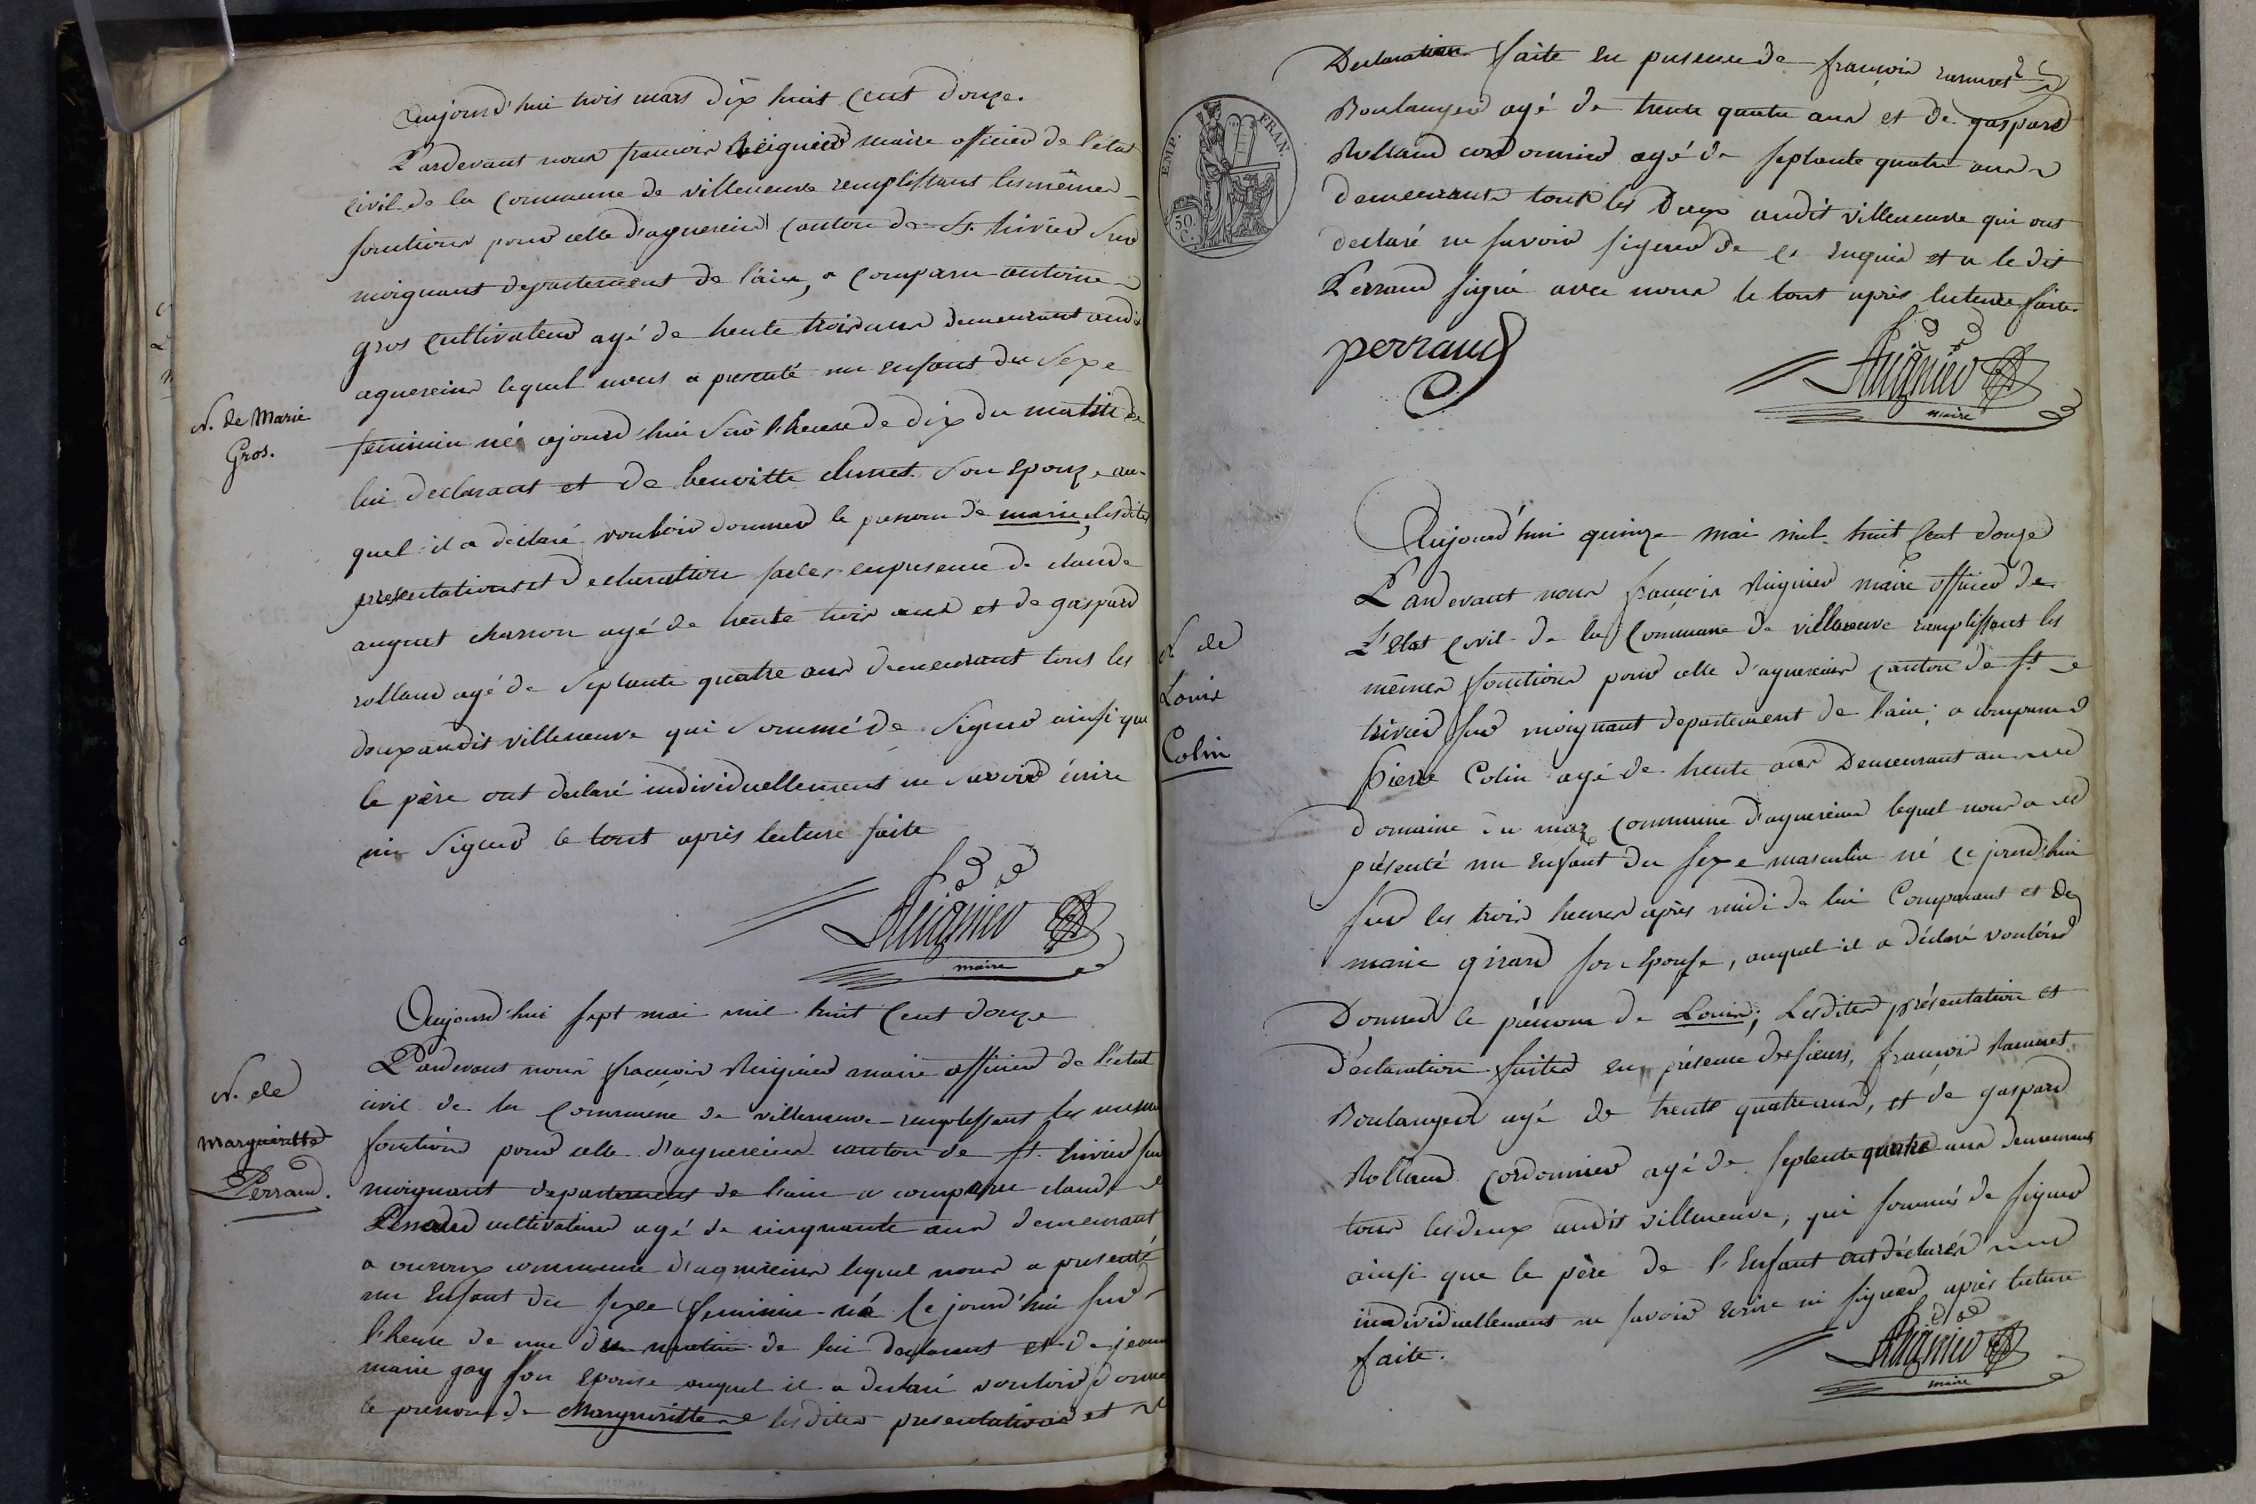 Aujourd'hui trois mars dix huit cent douze.
Pardevant nous françois Reignier maire officier de l'état
civil de la commune de villeneuve remplissant les mêmes
fonctions pour celle d'agnereins canton de St. trivier sur
moignant departement de l'ain, a comparu antoine
gros cultivateur agé de trente trois ans demeurant audit
agnereins lequel nous a presenté un enfant du sexe
N. de Marie
Gros.
feminin né cejourd'hui sur l'heure de dix du matin de
lui declarant et de benoitte son epouze au-
quel il a déclaré vouloir donner le prenom de marie, lesdites
presentations et declaration faites en presence de claude
auguet charron agé de trente trois ans et de gaspard
rolland agé de septante quatre ans demeurant tous les
deux audit villeneuve qui sommé de signer ainsi que
le père ont declaré individuellement ne savoir écrire
ni signer le tout après lecture faite
Reignier
maire
Aujourd'hui sept mai mil huit cent douze
Pardevant nous françois Reignier maire officier de l'état
civil de la commune de villeneuve remplissant les mesme
N. de
Marguiritte
Perraud.
fonctions pour celle d'agnereins canton de St. trivier sur
moignant departement de l'ain a comparu claude
Perraud cultivateur agé de cinquante ans demeurant
a ouroux commune d'agnereins lequel nous a presenté
un Enfant du sexe feminin né cejourd'hui sur
l'heure de une du matin de lui declarant et de jeanne
marie gay son epouse auquel il a declaré vouloir donner
le prenom de Marguiritte lesdites presentations et
Declaration faite en presence de françois ramnet
Boulanger agé de trente quatre ans et de gaspard
Rolland cordonnier agé de septante quatre ans
demeurants tous les deux audit villeneuve qui ont
declaré ne savoir signer de ce enquis et a le dit
Perraud signé avec nous le tout après lecture faite
EMP. FRAN.
50 C.
perraud
Reignier
maire
Aujourd'hui quinze mai mil huit cent douze
Pardevant nous françois Reignier maire officier de
L'Etat Civil de la Commune de villeneuve remplissant les
N. de
Louis
Colin
mêmes fonctions pour celle d'agnereins canton de St.
trivier sur moignant departement de l'ain; a comparu
pierre Colin agé de trente ans Demeurant au
domaine du maz commune d'agnereins lequel nous a
présenté un enfant du sexe masculin né cejourd'hui
sur les trois heures après midi de lui Comparant et de
marie girard son Epouse, auquel il a déclaré vouloir
Donner le prénom de Louis; Lesdites présentation et
Déclaration faites en présence des sieurs, françois Ramnet
Boulanger agé de trente quatre ans, et de gaspard
Rolland cordonnier agé de septente quatre ans demeurant
tous les deux audit villeneuve, qui sommés de signer
ainsi que le père de l'Enfant ont déclarés
individuellement ne savoir ecrire ni signer après lecture
faite.
Reignier
maire